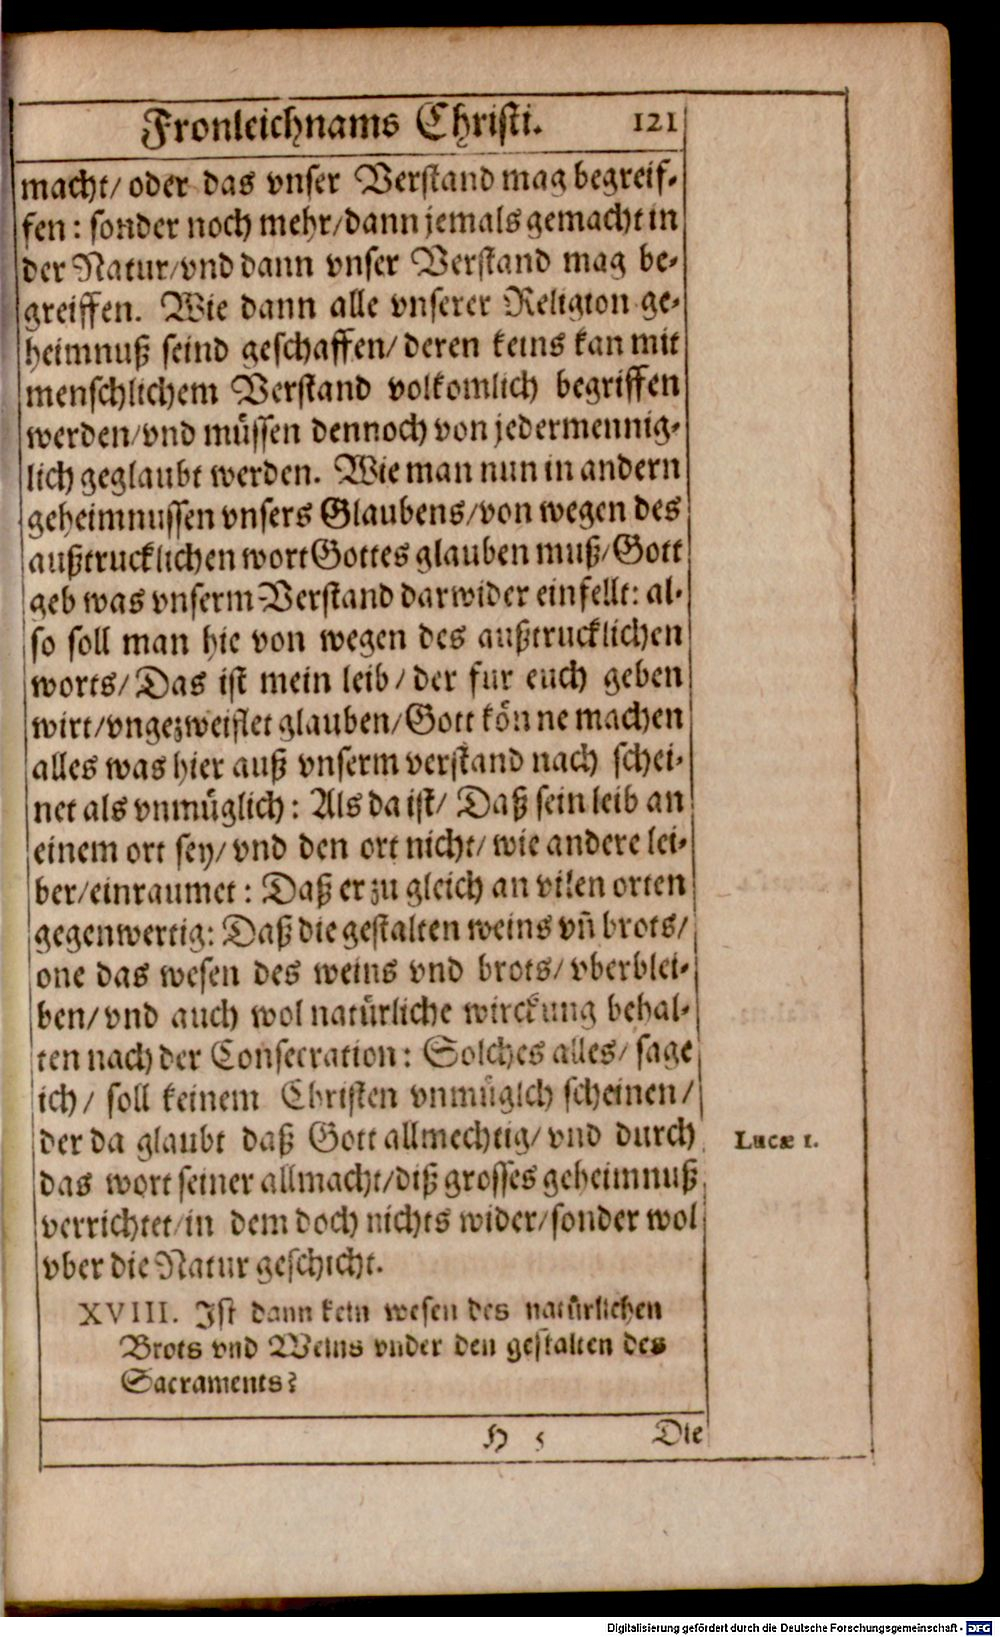 Fronleichnams Christi. 121
macht/ oder das vnser Verstand mag begreif-
fen: sonder noch mehr/dann jemals gemacht in
der Natur/vnd dann vnser Verstand mag be-
greiffen. Wie dann alle vnserer Religion ge-
heimnuß seind geschaffen/ deren keins kan mit
menschlichem Verstand volkomlich begriffen
werden/vnd müssen dennoch von jedermennig-
lich geglaubt werden. Wie man nun in andern
geheimnussen vnsers Glaubens/von wegen des
außtrucklichen wort Gottes glauben muß/Gott
geb was vnserm Verstand darwider einfellt: al-
so soll man hie von wegen des außtrucklichen
worts/ Das ist mein leib/ der fur euch geben
wirt/vngezweiflet glauben/Gott könne machen
alles was hier auß vnserm verstand nach schei-
net als vnmüglich: Als da ist/ Daß sein leib an
einem ort sey/ vnd den ort nicht/ wie andere lei-
ber/einraumet: Daß er zu gleich an vilen orten
gegenwertig: Daß die gestalten weins vñ brots/
one das wesen des weins vnd brots/ vberblei-
ben/ vnd auch wol natürliche wirckung behal-
ten nach der Consecration: Solches alles/ sage
ich/ soll keinem Christen vnmüglch scheinen/
der da glaubt daß Gott allmechtig/ vnd durch
Lucæ 1.
das wort seiner allmacht/diß grosses geheimnuß
verrichtet/in dem doch nichts wider/sonder wol
vber die Natur geschicht.
XVIII. Ist dann kein wesen des natürlichen
Brots vnd Weins vnder den gestalten des
Sacraments?
H 5 Die
Digitalisierung gefördert durch die Deutsche Forschungsgemeinschaft - DFG